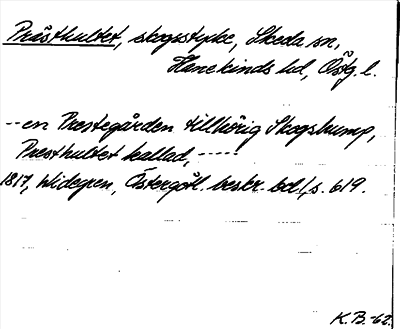 Prästhultet, skogsstycke, Skeda sn,
Hanekinds hd, Östg. l.
--en Prestegården tillhörig Skogshump,
Presthultet kallad, ----
1817, Widegren, Östergötl. beskr. bd 1, s. 619.
K.B.-62.